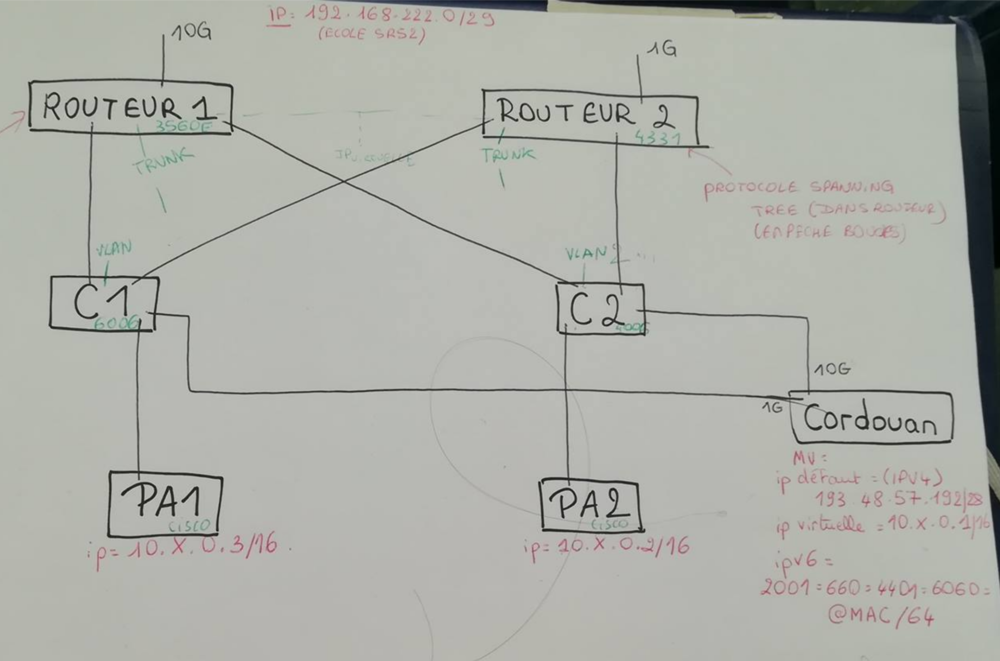 IP: 192.168.222.0/29
(ECOLE SRS2)
10G
1G
ROUTEUR 1
3560E
TRUNK
ROUTEUR 2
4331
TRUNK
PROTOCOLE SPANNING
TREE (DANS ROUTEUR)
(EMPECHE BOUCLES)
VLAN
C1
6006
VLAN
C2
10G
1G
Cordouan
MV:
ip défaut = (IPV4)
193 48.57.192/28
ip virtuelle = 10.X.0.1/16
ipv6 =
2001:660:4401:6060:
@MAC/64
PA1
CISCO
ip= 10.X.0.3/16.
PA2
CISCO
ip= 10.X.0.2/16